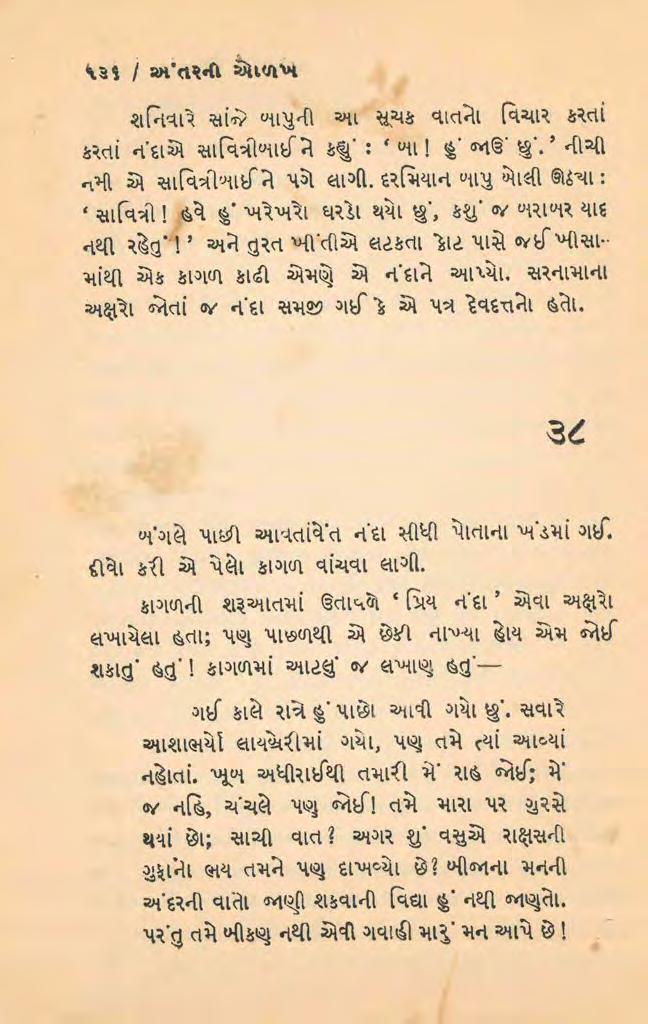 ૧૩૬ / અંતરની ઓળખ
શનિવારે સાંજે બાપુની આ સૂચક વાતનો વિચાર કરતાં
કરતાં નંદાએ સાવિત્રીબાઈને કહ્યું : ‘ બા! હું જાઉં છું.’ નીચી
નમી એ સાવિત્રીબાઈને પગે લાગી. દરમિયાન બાપુ બોલી ઊઠ્યા :
‘ સાવિત્રી! હવે હું ખરેખરો ઘરડો થયો છું, કશું જ બરાબર યાદ
નથી રહેતું!’ અને તુરત ખીંતીએ લટકતા કોટ પાસે જઈ ખીસા-
માંથી એક કાગળ કાઢી એમણે એ નંદાને આપ્યો. સરનામાના
અક્ષરો જોતાં જ નંદા સમજી ગઈ કે એ પત્ર દેવદત્તનો હતો.
૩૮
બંગલે પાછી આવતાંવેંત નંદા સીધી પોતાના ખંડમાં ગઈ.
દીવો કરી એ પેલો કાગળ વાંચવા લાગી.
કાગળની શરૂઆતમાં ઉતાવળે ‘ પ્રિય નંદા ’ એવા અક્ષરો
લખાયેલા હતા; પણ પાછળથી એ છેકી નાખ્યા હોય એમ જોઈ
શકાતું હતું! કાગળમાં આટલું જ લખાણ હતું—
ગઈ કાલે રાત્રે હું પાછો આવી ગયો છું. સવારે
આશાભર્યો લાયબ્રેરીમાં ગયો, પણ તમે ત્યાં આવ્યાં
નહોતાં. ખૂબ અધીરાઈથી તમારી મેં રાહ જોઈ; મેં
જ નહિ, ચંચલે પણ જોઈ! તમે મારા પર ગુસ્સે
થયાં છો; સાચી વાત? અગર શું વસુએ રાક્ષસની
ગુફાનો ભય તમને પણ દાખવ્યો છે? બીજાના મનની
અંદરની વાતો જાણી શકવાની વિદ્યા હું નથી જાણતો.
પરંતુ તમે બીકણ નથી એવી ગવાહી મારું મન આપે છે!